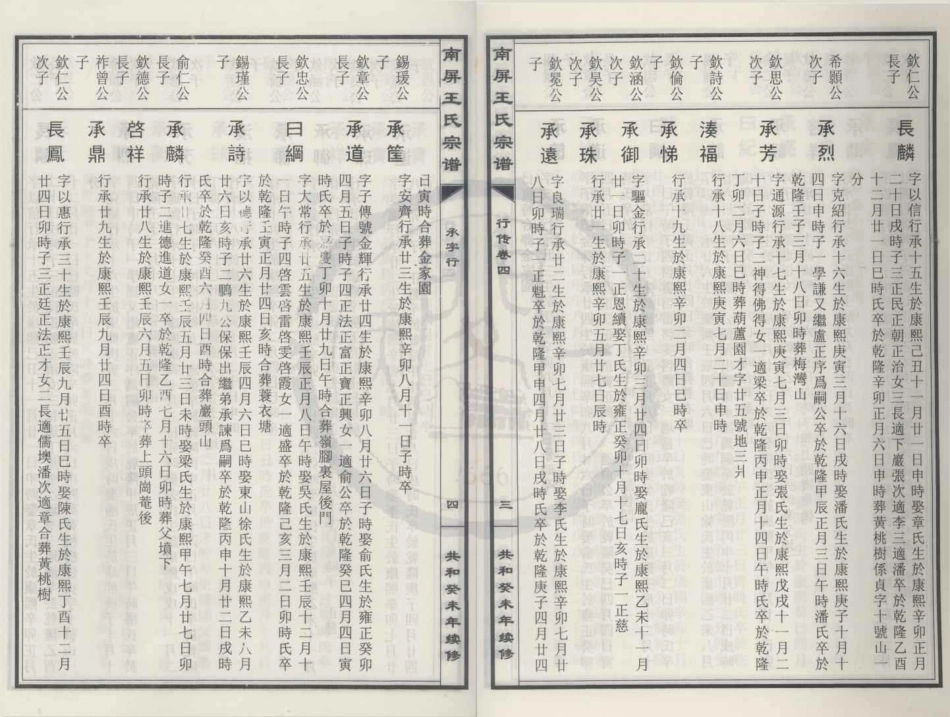 欽仁公長子
長麟
字以信行承十五生於康熙己丑十一月廿一日申時娶章氏生於康熙辛卯正月
二十日戌時子三正民正朝正治女三長適下巖張次適李三適潘卒於乾隆乙酉
十二月廿一日巳時氏卒於乾隆辛卯正月六日申時葬黃桃樹係貞字十號山一
分
希顯公次子
承烈
字克紹行承十六生於康熙庚寅三月十六日戌時娶潘氏生於康熙庚子十月十
四日申時子一學謙又繼盧正序爲嗣公卒於乾隆甲辰正月三日午時潘氏卒於
乾隆壬子三月十八日卯時葬梅灣山
欽思公次子
承芳
字通源行承十七生於康熙庚寅七月三日卯時娶張氏生於康熙戊戌十一月二
十日子時子二神得佛得女一適梁卒於乾隆丙申正月十四日午時氏卒於乾隆
丁卯二月六日巳時葬葫蘆園才字廿五號地三爿
欽詩公子
湊福
行承十八生於康熙庚寅七月二十日申時
欽倫公子
承悌
行承十九生於康熙辛卯二月四日巳時卒
欽涵公次子
承御
字驅金行承二十生於康熙辛卯三月廿四日卯時娶龐氏生於康熙乙未十一月
廿一日卯時子一正恩續娶丁氏生於雍正癸卯十月十七日亥時子一正慈
欽昊公次子
承珠
行承廿一生於康熙辛卯五月廿七日辰時
欽冕公子
承遠
字良瑞行承廿二生於康熙辛卯七月廿三日子時娶李氏生於康熙辛卯七月廿
八日卯時子一正魁卒於乾隆甲申四月廿八日戌時氏卒於乾隆庚子四月廿四
南屏王氏宗譜
行传卷四
三
共和癸未年续修
南屏王氏宗譜
承字行
四
共和癸未年续修
日寅時合葬金家園
錫瑗公子
承筐
字安齊行承廿三生於康熙辛卯八月十一日子時卒
欽章公長子
承道
字子傳號金輝行承廿四生於康熙辛卯八月廿六日子時娶俞氏生於雍正癸卯
四月五日子時子四正法正富正寶正興女一適俞公卒於乾隆癸巳四月四日寅
時氏卒於乾隆丁卯十月廿九日午時合葬嶺腳裏屋後門
欽忠公長子
曰綱
字大常行承廿五生於康熙壬辰正月八日午時娶吳氏生於康熙壬辰十二月十
一日午時子四啓雲啓雷啓雯啓霞女一適盛卒於乾隆己亥三月二日卯時氏卒
於乾隆壬寅正月廿四日亥時合葬蓑衣塘
錫瑾公子
承詩
字以壽行承廿六生於康熙壬辰四月六日巳時娶東山徐氏生於康熙乙未八月
廿六日亥時子二鵬九公保保出繼弟承諫爲嗣卒於乾隆丙申十月廿二日戌時
氏卒於乾隆癸酉六月四日酉時合葬巖頭山
俞仁公長子
承麟
行承廿七生於康熙壬辰五月廿三日未時娶梁氏生於康熙甲午七月廿七日卯
時子二進德進道女一卒於乾隆乙酉七月十六日卯時葬父墳下
欽德公長子
啓祥
行承廿八生於康熙壬辰六月五日卯時卒葬上頭崗菴後
祚曾公子
承鼎
行承廿九生於康熙壬辰九月廿四日酉時卒
欽仁公次子
長鳳
字以惠行承三十生於康熙壬辰九月廿五日巳時娶陳氏生於康熙丁酉十二月
廿四日卯時子三正廷正法正才女二長適儒墺潘次適章合葬黃桃樹